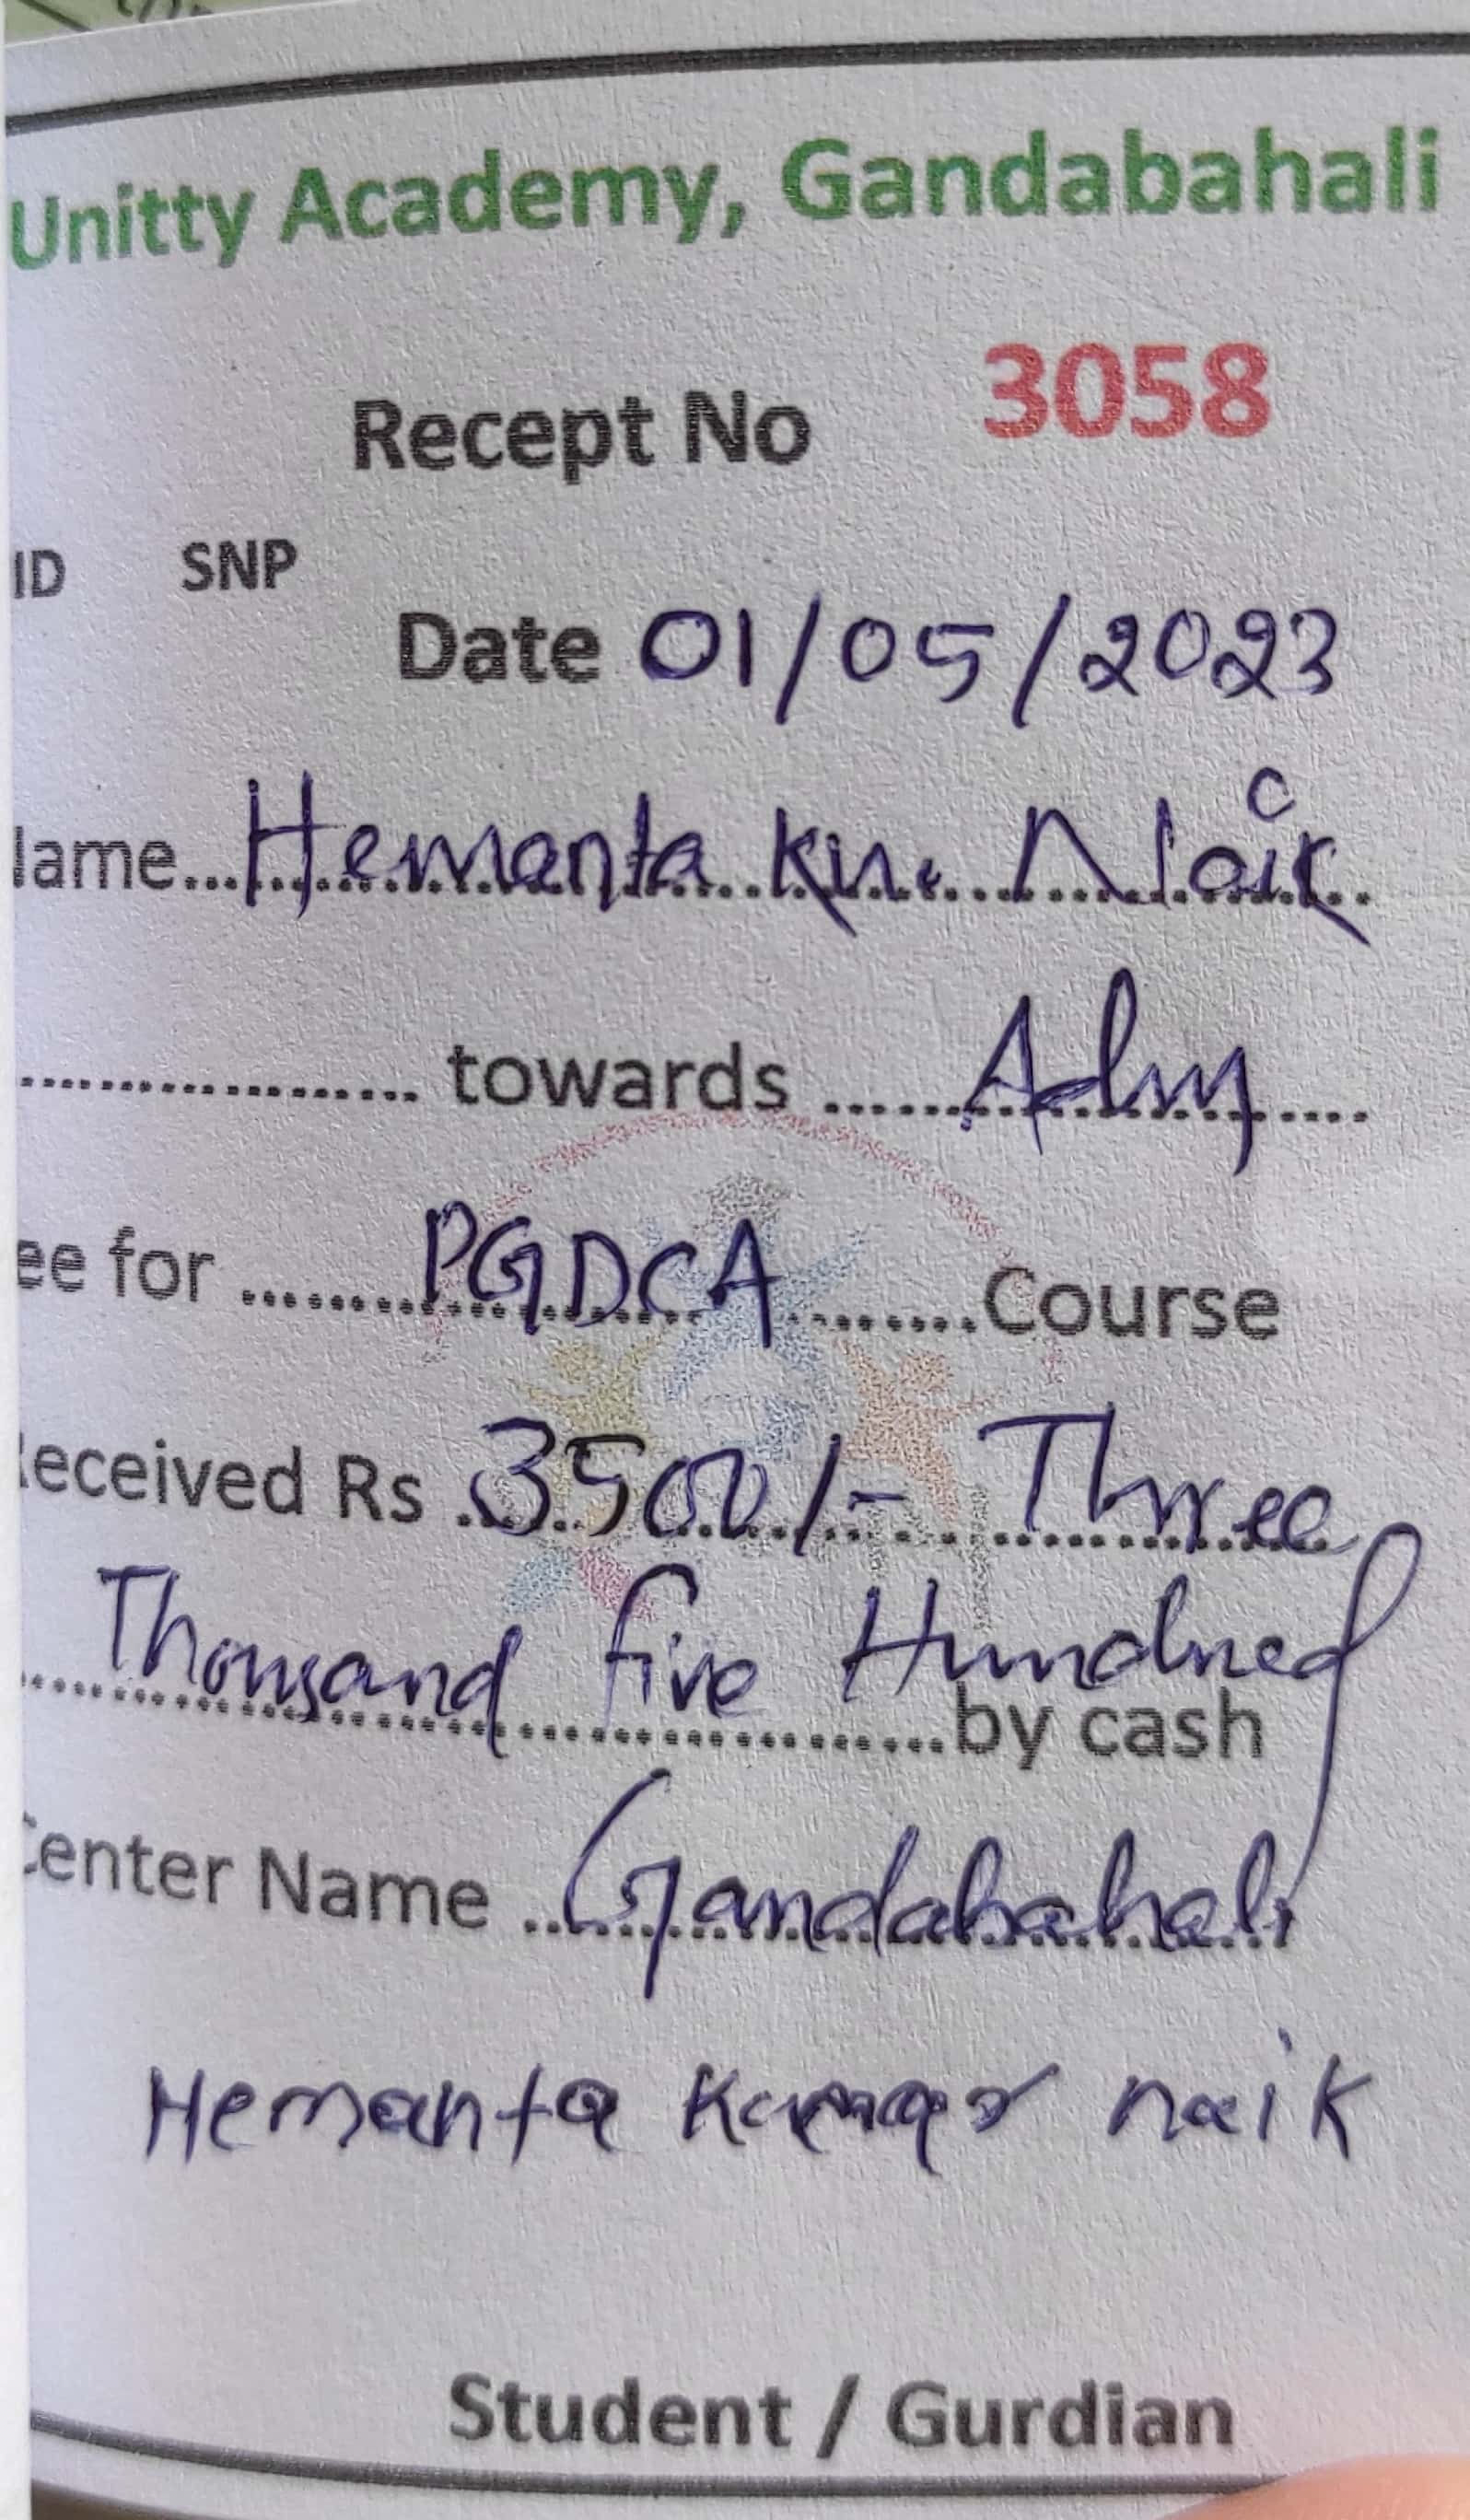 Unitty Academy, Gandabahali
Recept No 3058
ID SNP
Date 01/05/2023
Name...Hemanta Ku. Naik
.................. towards ..... Adm
ee for .......... PGDCA .........Course
Received Rs .3500/- Three
Thousand five Hundred
..................by cash
Center Name ..Gandabahali
Hemanta Kumar naik
Student / Gurdian